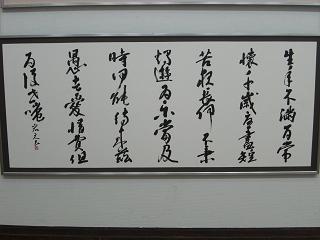 生年不滿百常
懷千歲憂晝短
苦夜長何不秉
燭遊為樂當及
時何能待來茲
愚者愛惜費但
為後世嗤